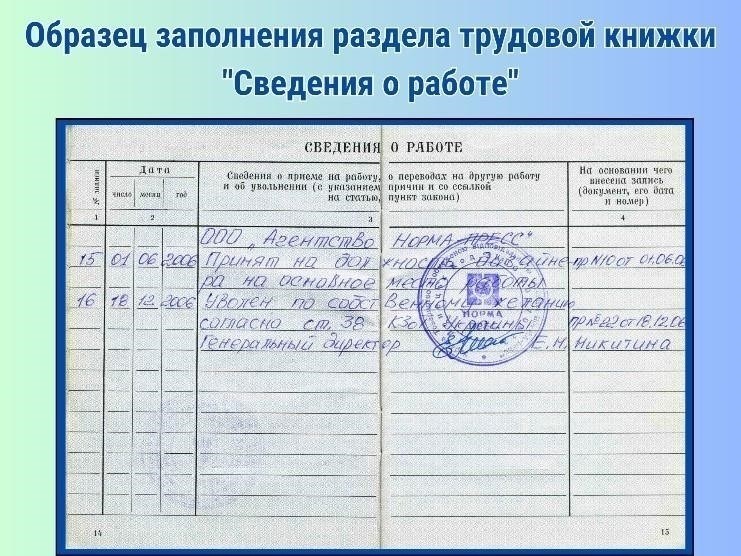 Образец заполнения раздела трудовой книжки
"Сведения о работе"
СВЕДЕНИЯ О РАБОТЕ
№ записи
Дата
число месяц год
Сведения о приеме на работу, о переводах на другую работу
и об увольнении (с указанием причин и со ссылкой
на статью, пункт закона)
На основании чего
внесена запись
(документ, его дата
и номер)
1 2 3 4
ООО „Агентство Норма-ПРЕСС"
15 01 06 2006 Принят на должность дизайне- пр №10 от 01.06.06
ра на основное место работы
16 18 12 2006 Уволен по собственному желанию
согласно ст. 38 КЗоТ Украины пр №22 от 18.12.06
Генеральный директор Е.Н. Никитина
НОРМА
14 15